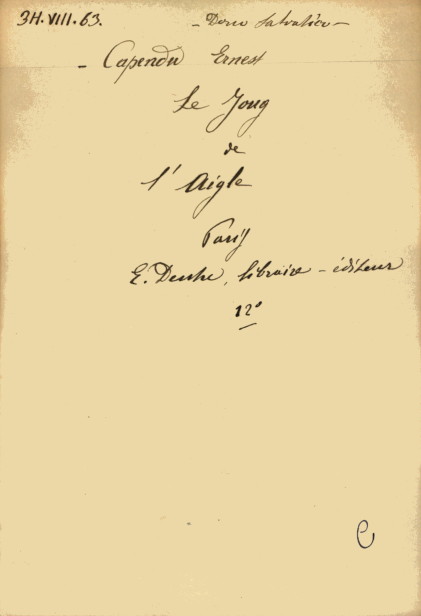 3H.VIII.63.
- Capendu Ernest
Le Joug
de
l'Aigle
Paris
E. Dentu, libraire - éditeur
12°
C